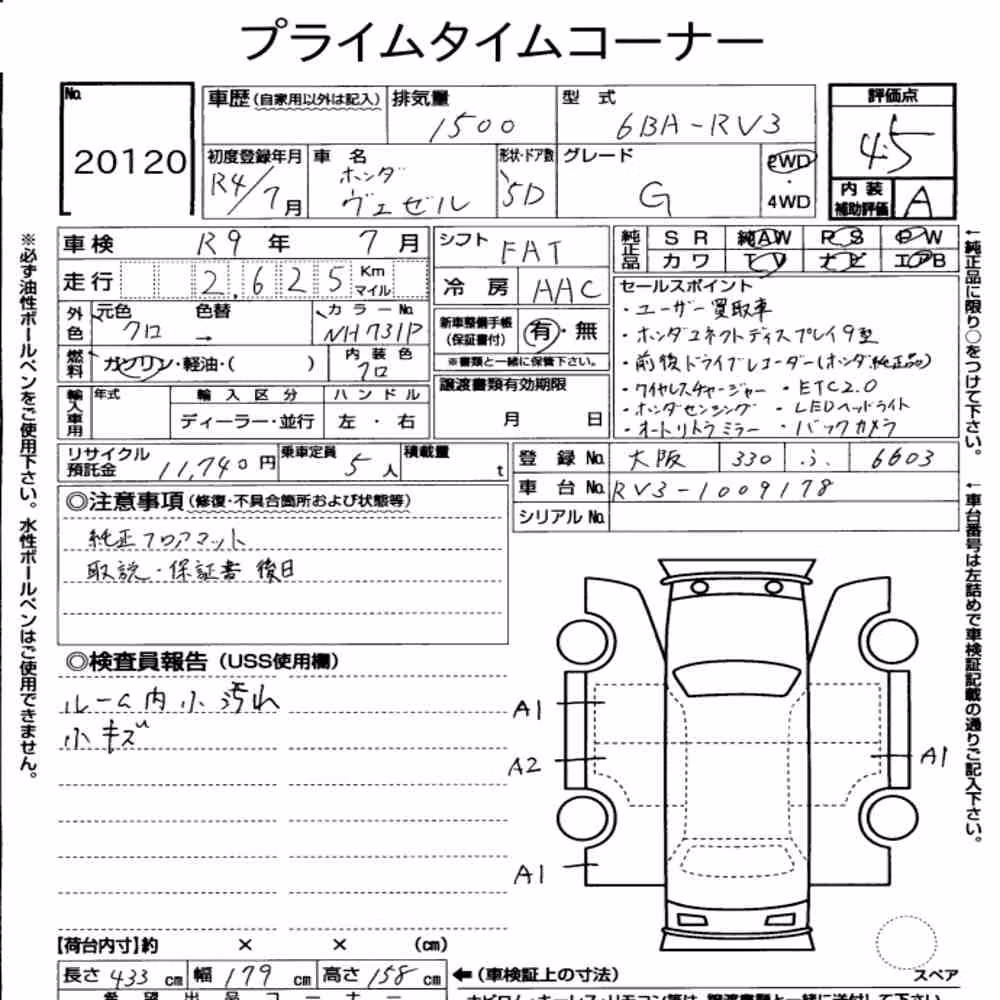 プライムタイムコーナー
No. 20120
車歴(自家用以外は記入) 排気量 1500 型式 6BA-RV3
初度登録年月 R4/7月 車名 ホンダ ヴェゼル 形状・ドア数 5D グレード G 2WD・4WD
評価点 4.5
内装補助評価 A
車検 R9年 7月 シフト FAT
純正品 SR 純AW PS PW
カワ TV ナビ エアB
走行 2,625 Km マイル 冷房 AAC
外色 元色 クロ 色替 → カラーNo. NH731P
新車整備手帳(保証書付) 有・無
※書類と一緒に保管下さい。
燃料 ガソリン・軽油・( ) 内装色 クロ
譲渡書類有効期限 月 日
輸入車用 年式 輸入区分 ディーラー・並行 ハンドル 左・右
セールスポイント
・ユーザー買取車
・ホンダコネクトディスプレイ9型
・前後ドライブレコーダー(ホンダ純正品)
・ワイヤレスチャージャー ・ETC2.0
・ホンダセンシング ・LEDヘッドライト
・オートリトラミラー ・バックカメラ
リサイクル預託金 11,740円 乗車定員 5人 積載量 t
登録No. 大阪 330 ふ 6603
車台No. RV3-1009178
シリアルNo.
◎注意事項(修復・不具合箇所および状態等)
純正フロアマット
取説・保証書 後日
◎検査員報告(USS使用欄)
ルーム内小汚れ
小キズ
A1
A2
A1
A1
スペア
【荷台内寸】約 × × (cm)
長さ 433 cm 幅 179 cm 高さ 158 cm ←(車検証上の寸法)
希望出品コーナー
※必ず油性ボールペンをご使用下さい。水性ボールペンはご使用できません。
←純正品に限り○をつけて下さい。
←車台番号は左詰めで車検証記載の通りご記入下さい。